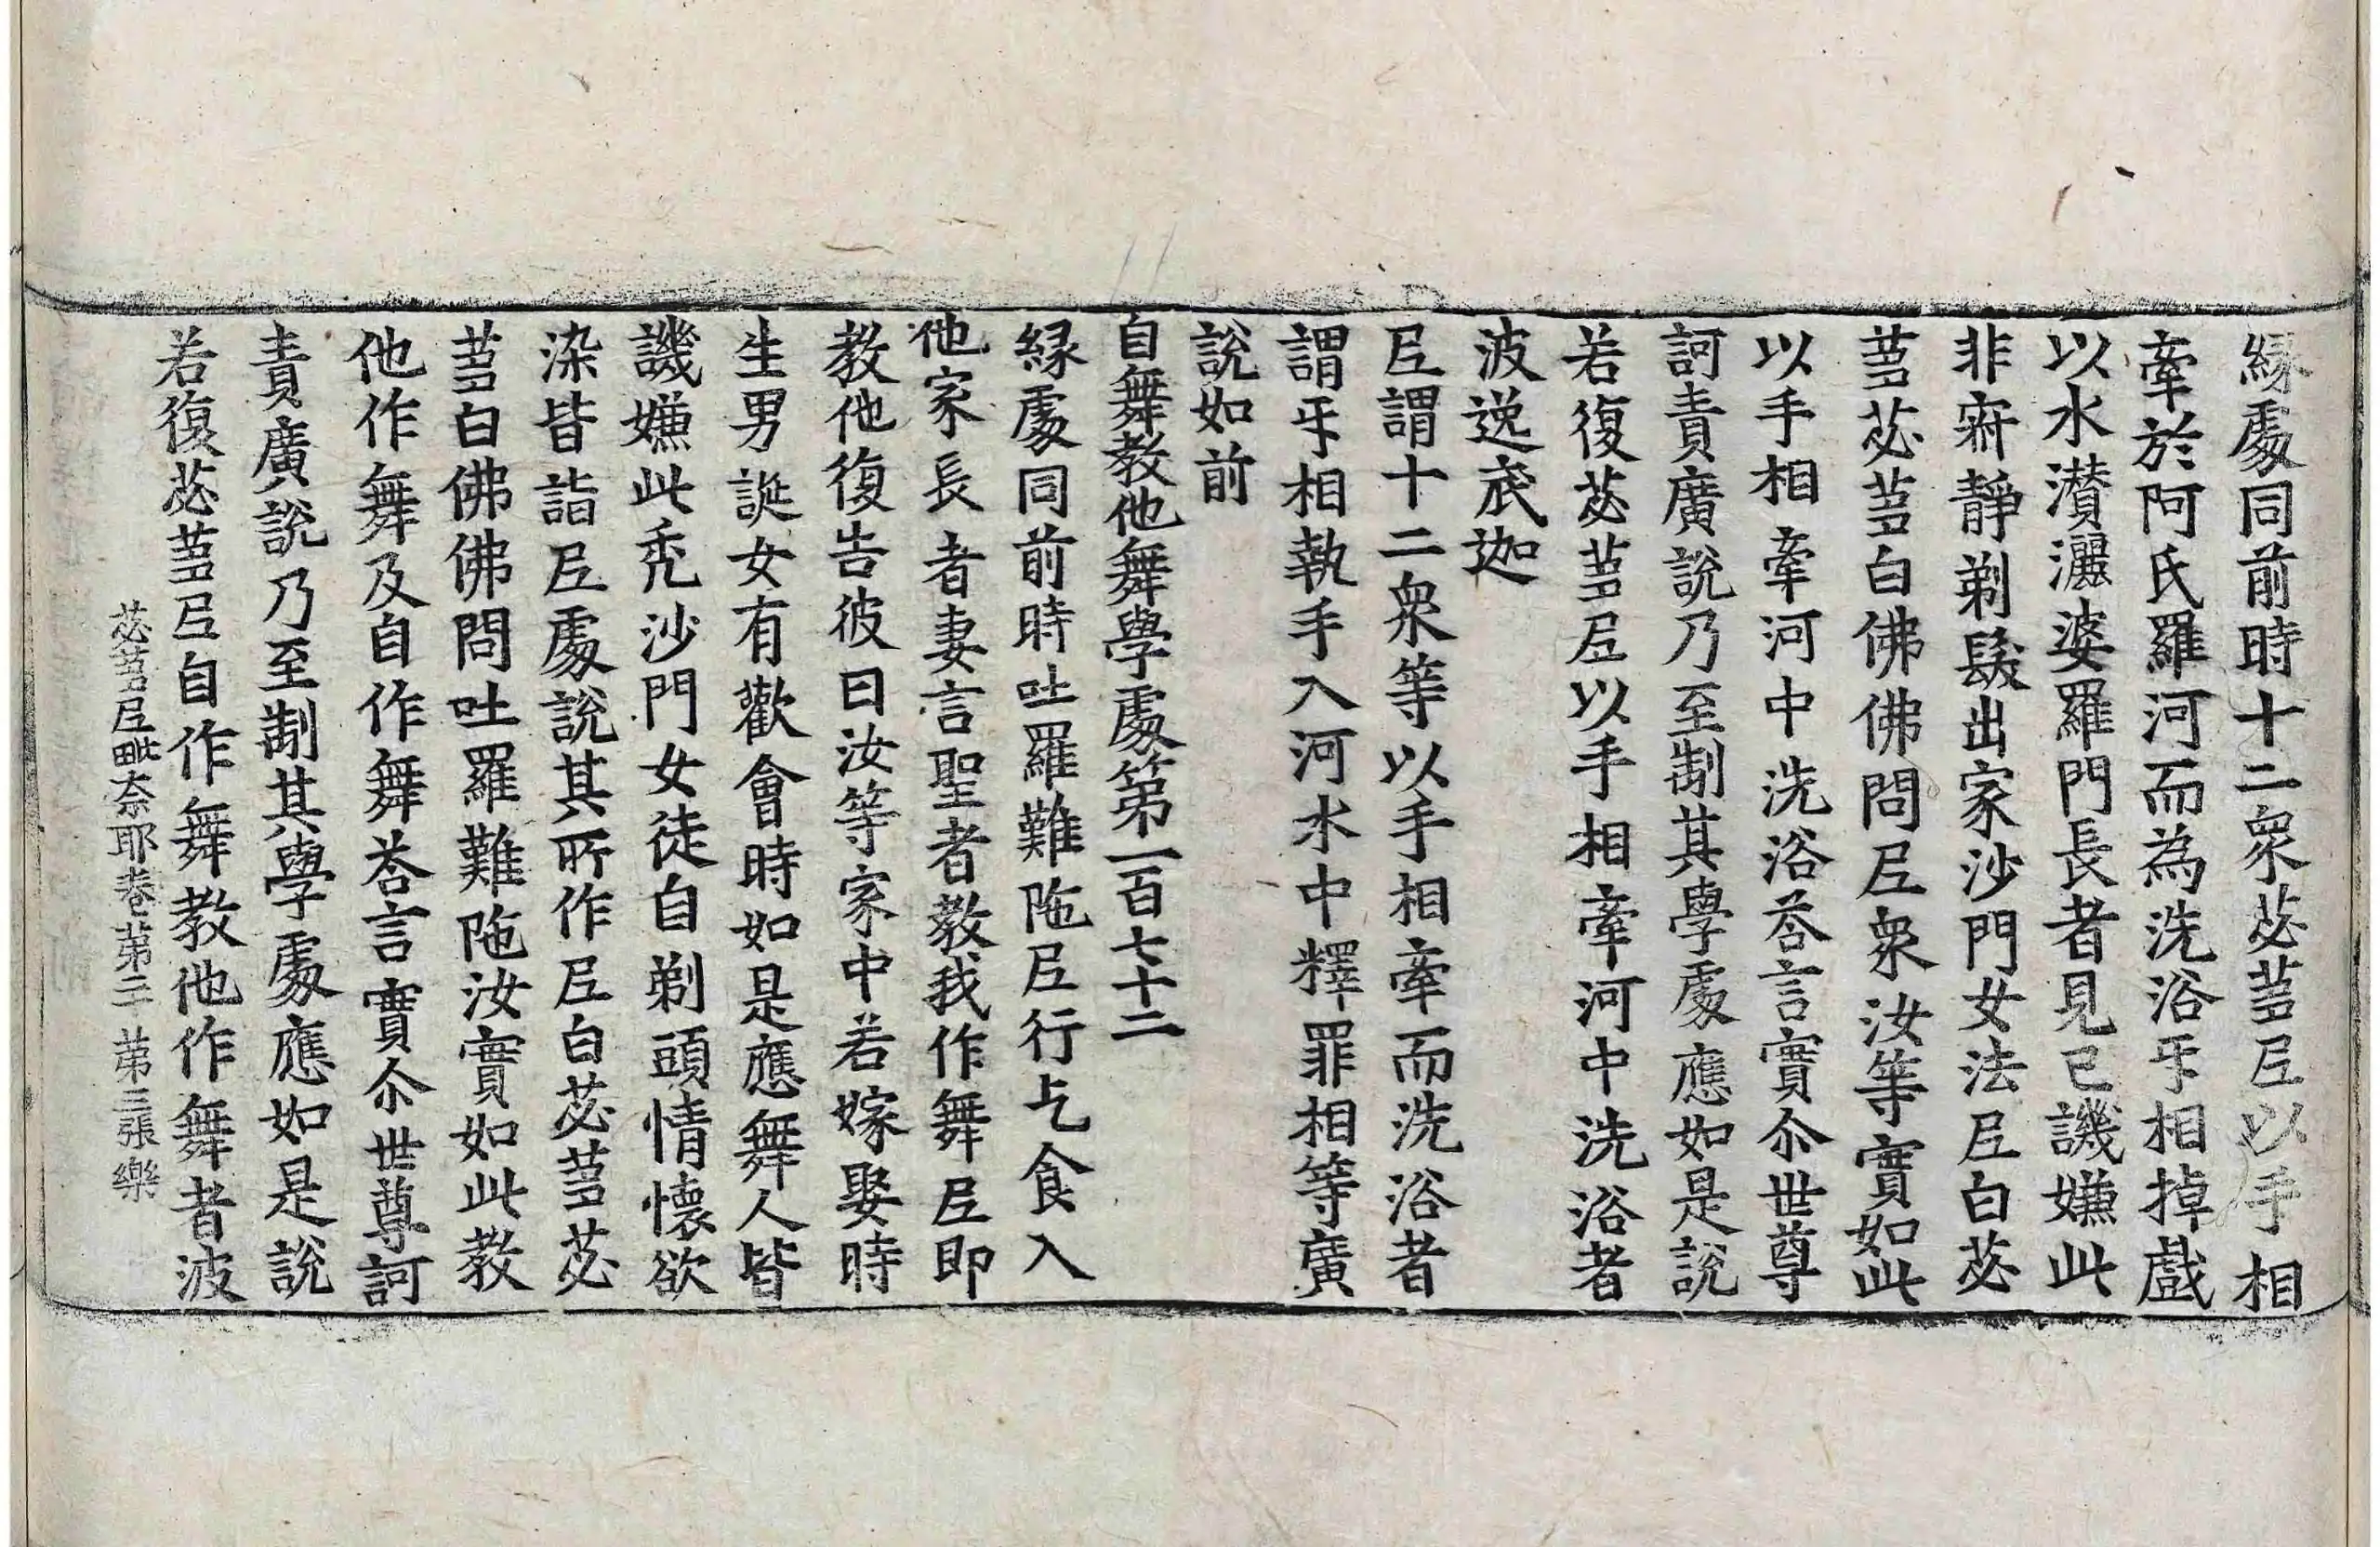 縁處同前時十二衆苾蒭𡰱以手相
牽於阿氏羅河而為洗浴𠀕相掉戲
以水濽灑婆羅門長者見已譏嫌此
非寂靜剃髮出家沙門女法𡰱白苾
蒭苾蒭白佛佛問𡰱衆汝等實如此
以手相牽河中洗浴荅言實尒世尊
訶責廣說乃至制其學處應如是說
若復苾蒭𡰱以手相牽河中洗浴者
波逸底迦
𡰱謂十二衆等以手相牽而洗浴者
謂𠀕相執手入河水中釋罪相等廣
說如前
自舞教他舞學處第一百七十二
縁處同前時吐羅難陁𡰱行乞食入
他家長者妻言聖者教我作舞𡰱即
教他復告彼曰汝等家中若嫁娶時
生男誕女有歡會時如是應舞人皆
譏嫌此禿沙門女徒自剃頭情懐欲
染皆詣𡰱處說其所作𡰱白苾蒭苾
蒭白佛佛問吐羅難陁汝實如此教
他作舞及自作舞荅言實尒世尊訶
責廣說乃至制其學處應如是說
若復苾蒭𡰱自作舞教他作舞者波
苾蒭𡰱毗奈耶卷第二十 第三張 樂